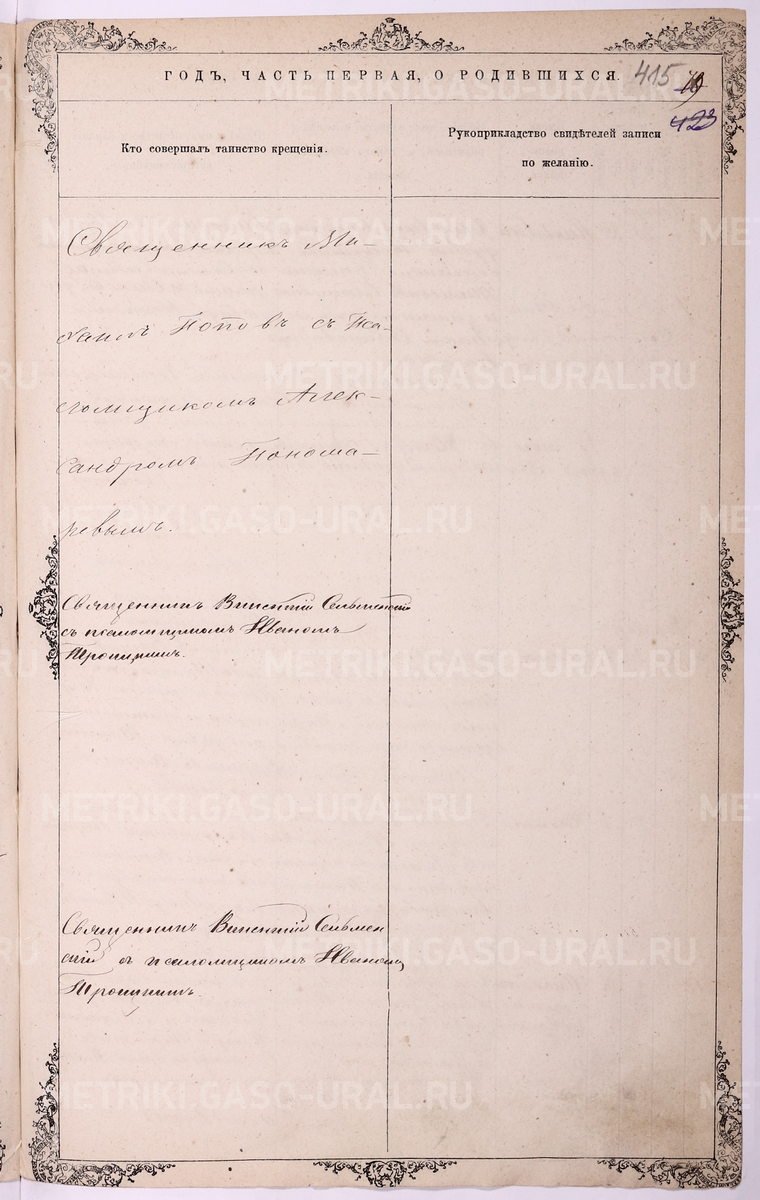 ГОДЪ, ЧАСТЬ ПЕРВАЯ, О РОДИВШИХСЯ. 415
423
Кто совершалъ таинство крещенія.
Рукоприкладство свидѣтелей записи
по желанію.
Священникъ Ми-
хаилъ Поповъ съ Пса-
ломщикомъ Алек-
сандромъ Понома-
ревымъ.
Священникъ Викентій Сельменскій
съ псаломщикомъ Иваномъ
Тропинымъ.
Священникъ Викентій Сельмен
скій съ псаломщикомъ Иваномъ
Тропинымъ.
METRIKI.GASO-URAL.RU